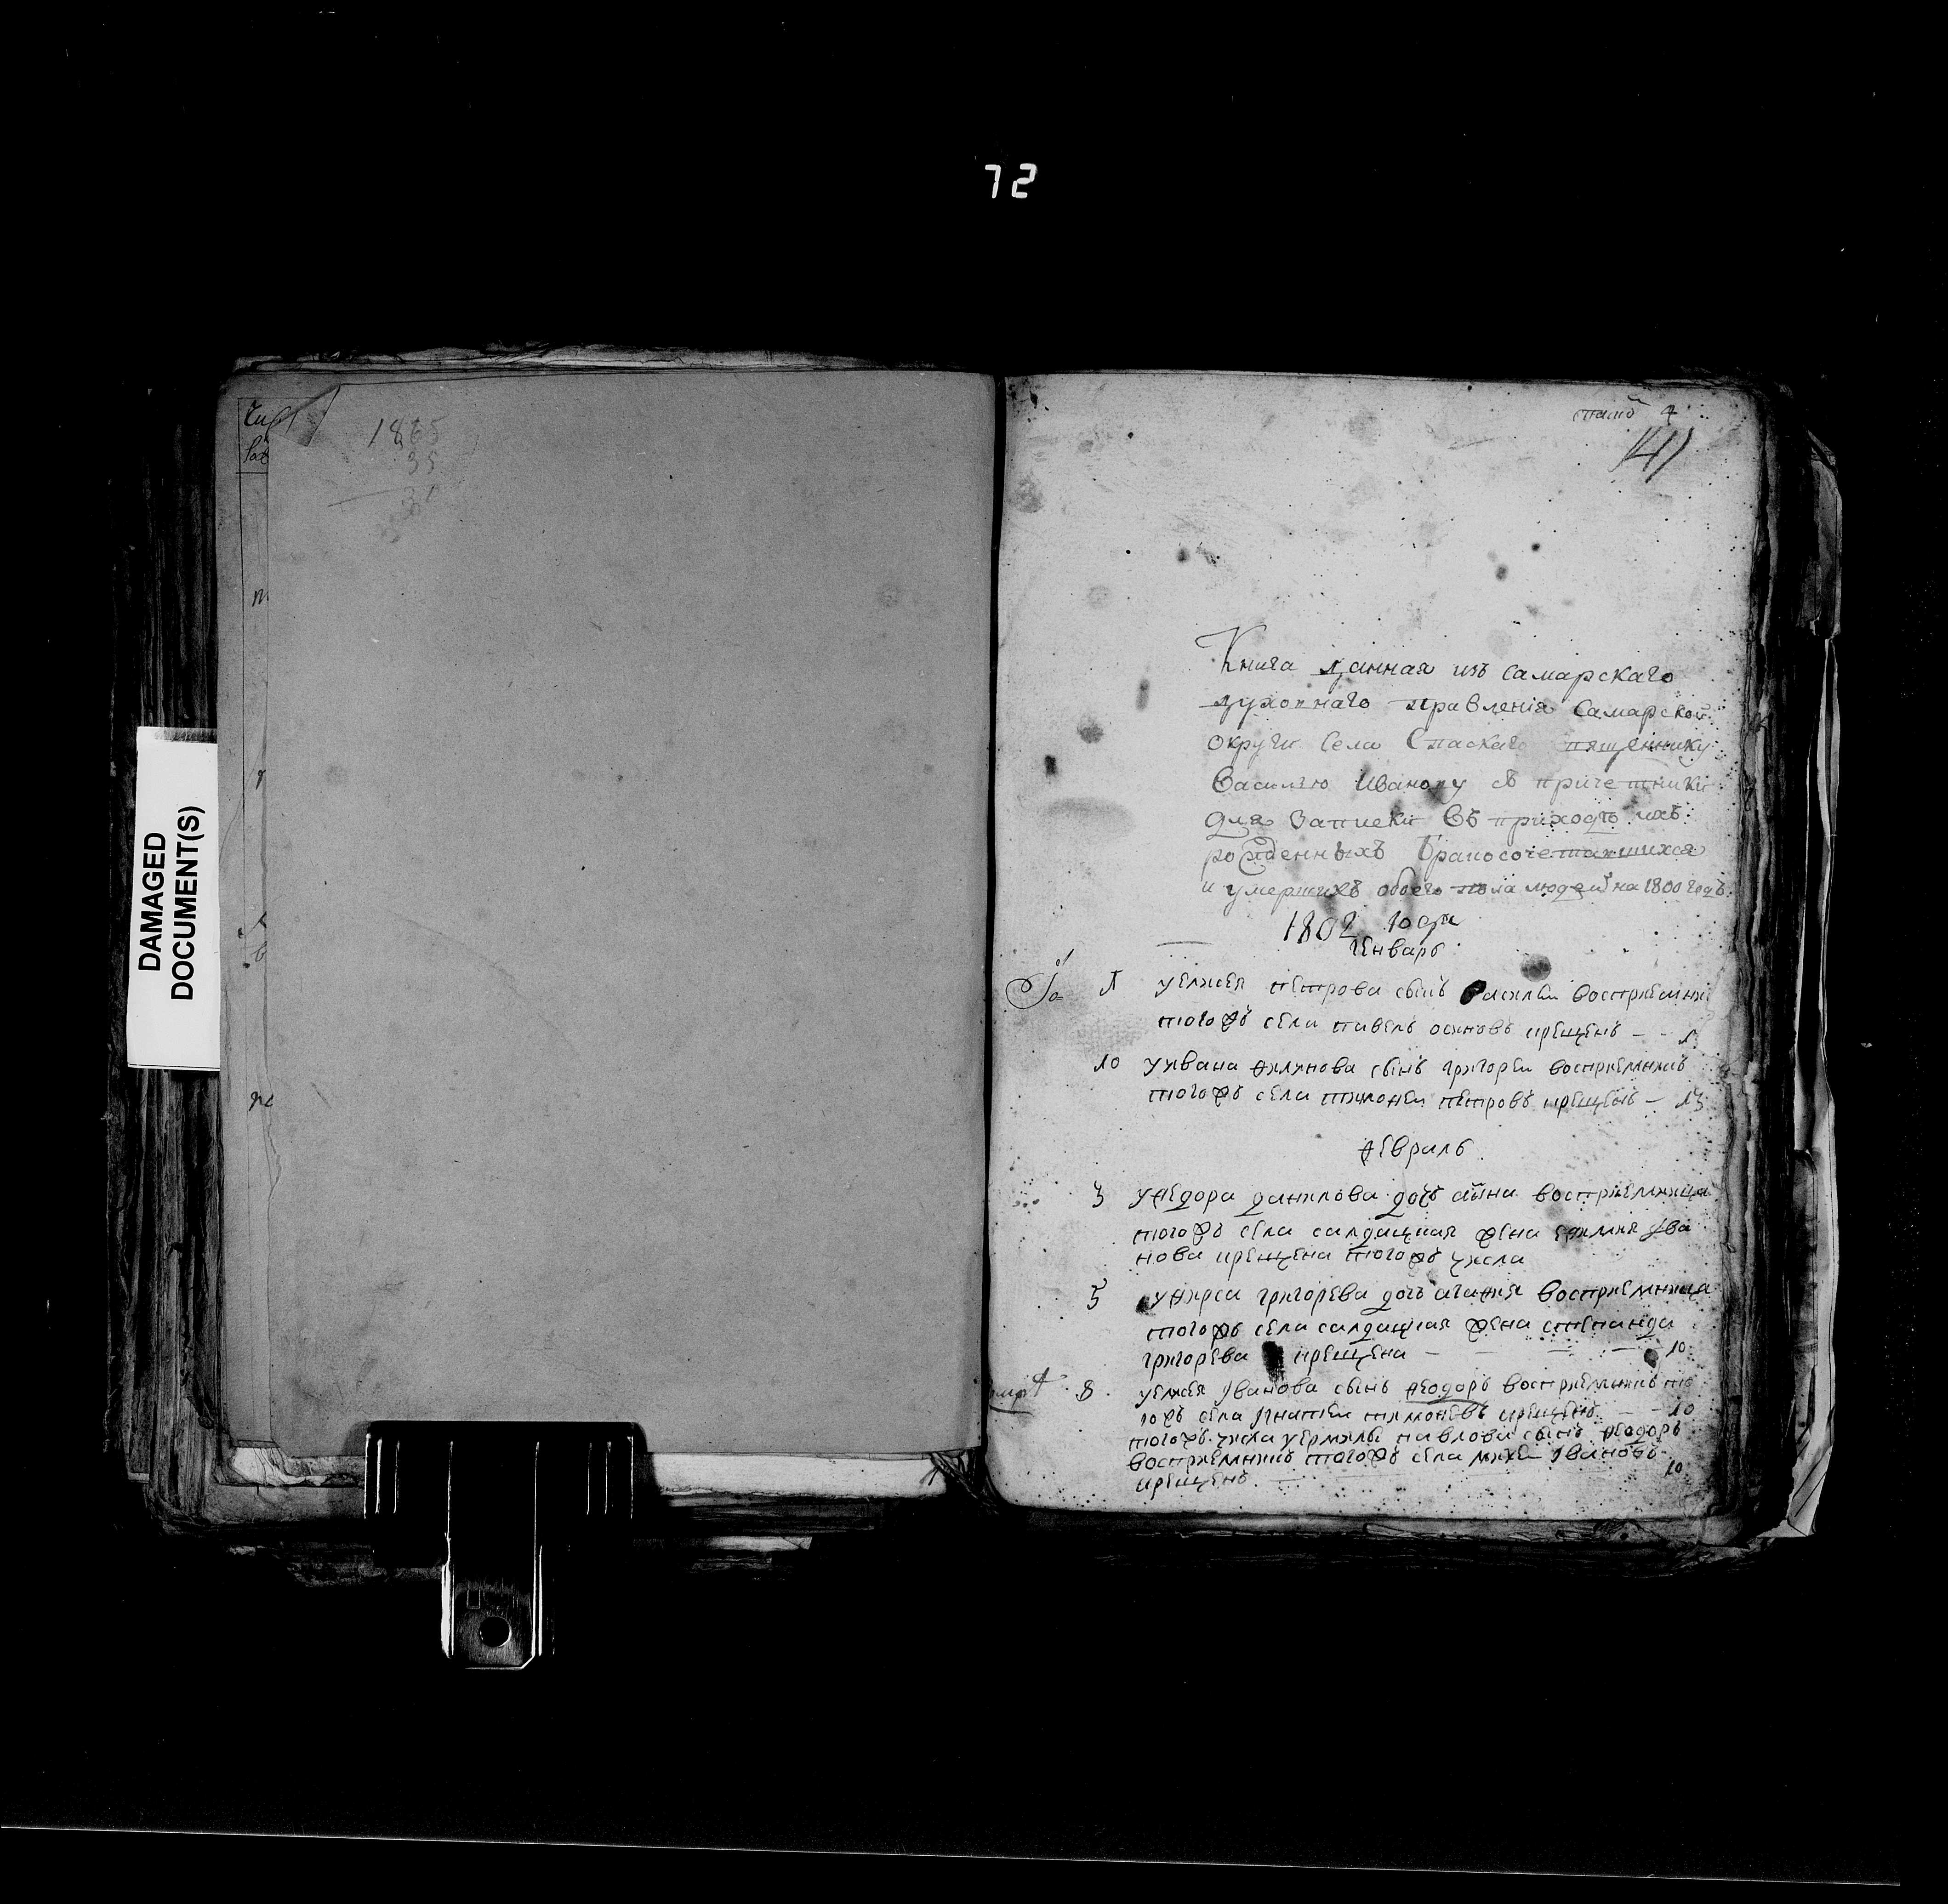 72
DAMAGED
DOCUMENT(S)
1865
35
30
4
141
Книга данная изъ Самарскаго
духовнаго правления Самарской
округи села Спаскаго священнику
Василью Иванову съ причетники
для записки въ приходѣ ихъ
рожденныхъ бракосочетавшихся
и умершихъ обоего пола людей на 1800 годъ
1802 года
Генварь
1 уелисея петрова сынъ василеи восприемникъ
тогожъ села павелъ осиповъ крещенъ
10 уивана филипова сынъ григореи восприемникъ
тогожъ села тимофеи петровъ крещенъ - 13
февраль
3 уфедора данилова дочь анна восприемница
тогожъ села салдацкая жена ефимия ива
нова крещена тогожъ числа
5 уфирса григорева дочь агафия восприемница
тогожъ села салдацкая жена степанида
григорева крещена 10
8 уелисея Иванова сынъ феодоръ восприемникъ то
гожъ села Игнатеи крещенъ 10
тогожъ числа уермилы павлова сынъ феодоръ
восприемникъ тогожъ села михеи Ивановъ
крещенъ 10